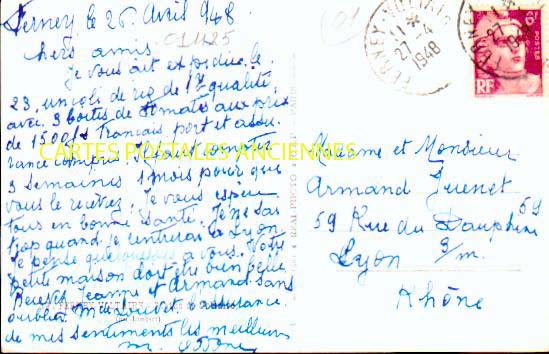 Ferney le 26 Avril 948
Chers amis.
Je vous ait expedier le
23, un coli de riz 1re qualité,
avec 3 boites de tomates aux prix
de 1500 frs Francais port et assu
rance compris. Il faut compter
3 semaines 1 mois pour que
vous le recevez. Je vous espère
tous en bonne santé. Je ne sais
trop quand je rentrerai à Lyon
Je pense quelquefois a vous. Votre
petite maison doit être bien belle
Jeanne et Armand sans
oublier l'assurance
de mes sentiments les meilleurs
M.
01425
01
CARTES POSTALES ANCIENNES
FERNEY-VOLTAIRE
11 *
27-4
1948
FERNEY
11 *
27
1948
POSTES
RF
Madame et Monsieur
Armand Guenet
59 Rue du Dauphiné 59
Lyon 3/m.
Rhône